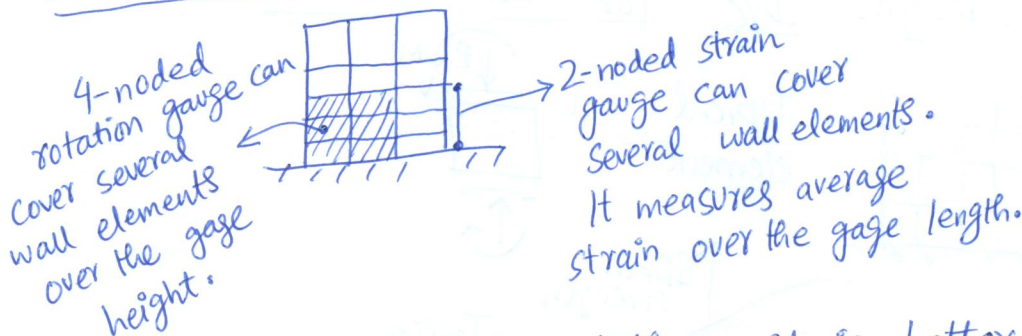 4-noded
rotation gauge can
cover several
wall elements
over the gage
height.
2-noded strain
gauge can cover
several wall elements.
It measures average
strain over the gage length.